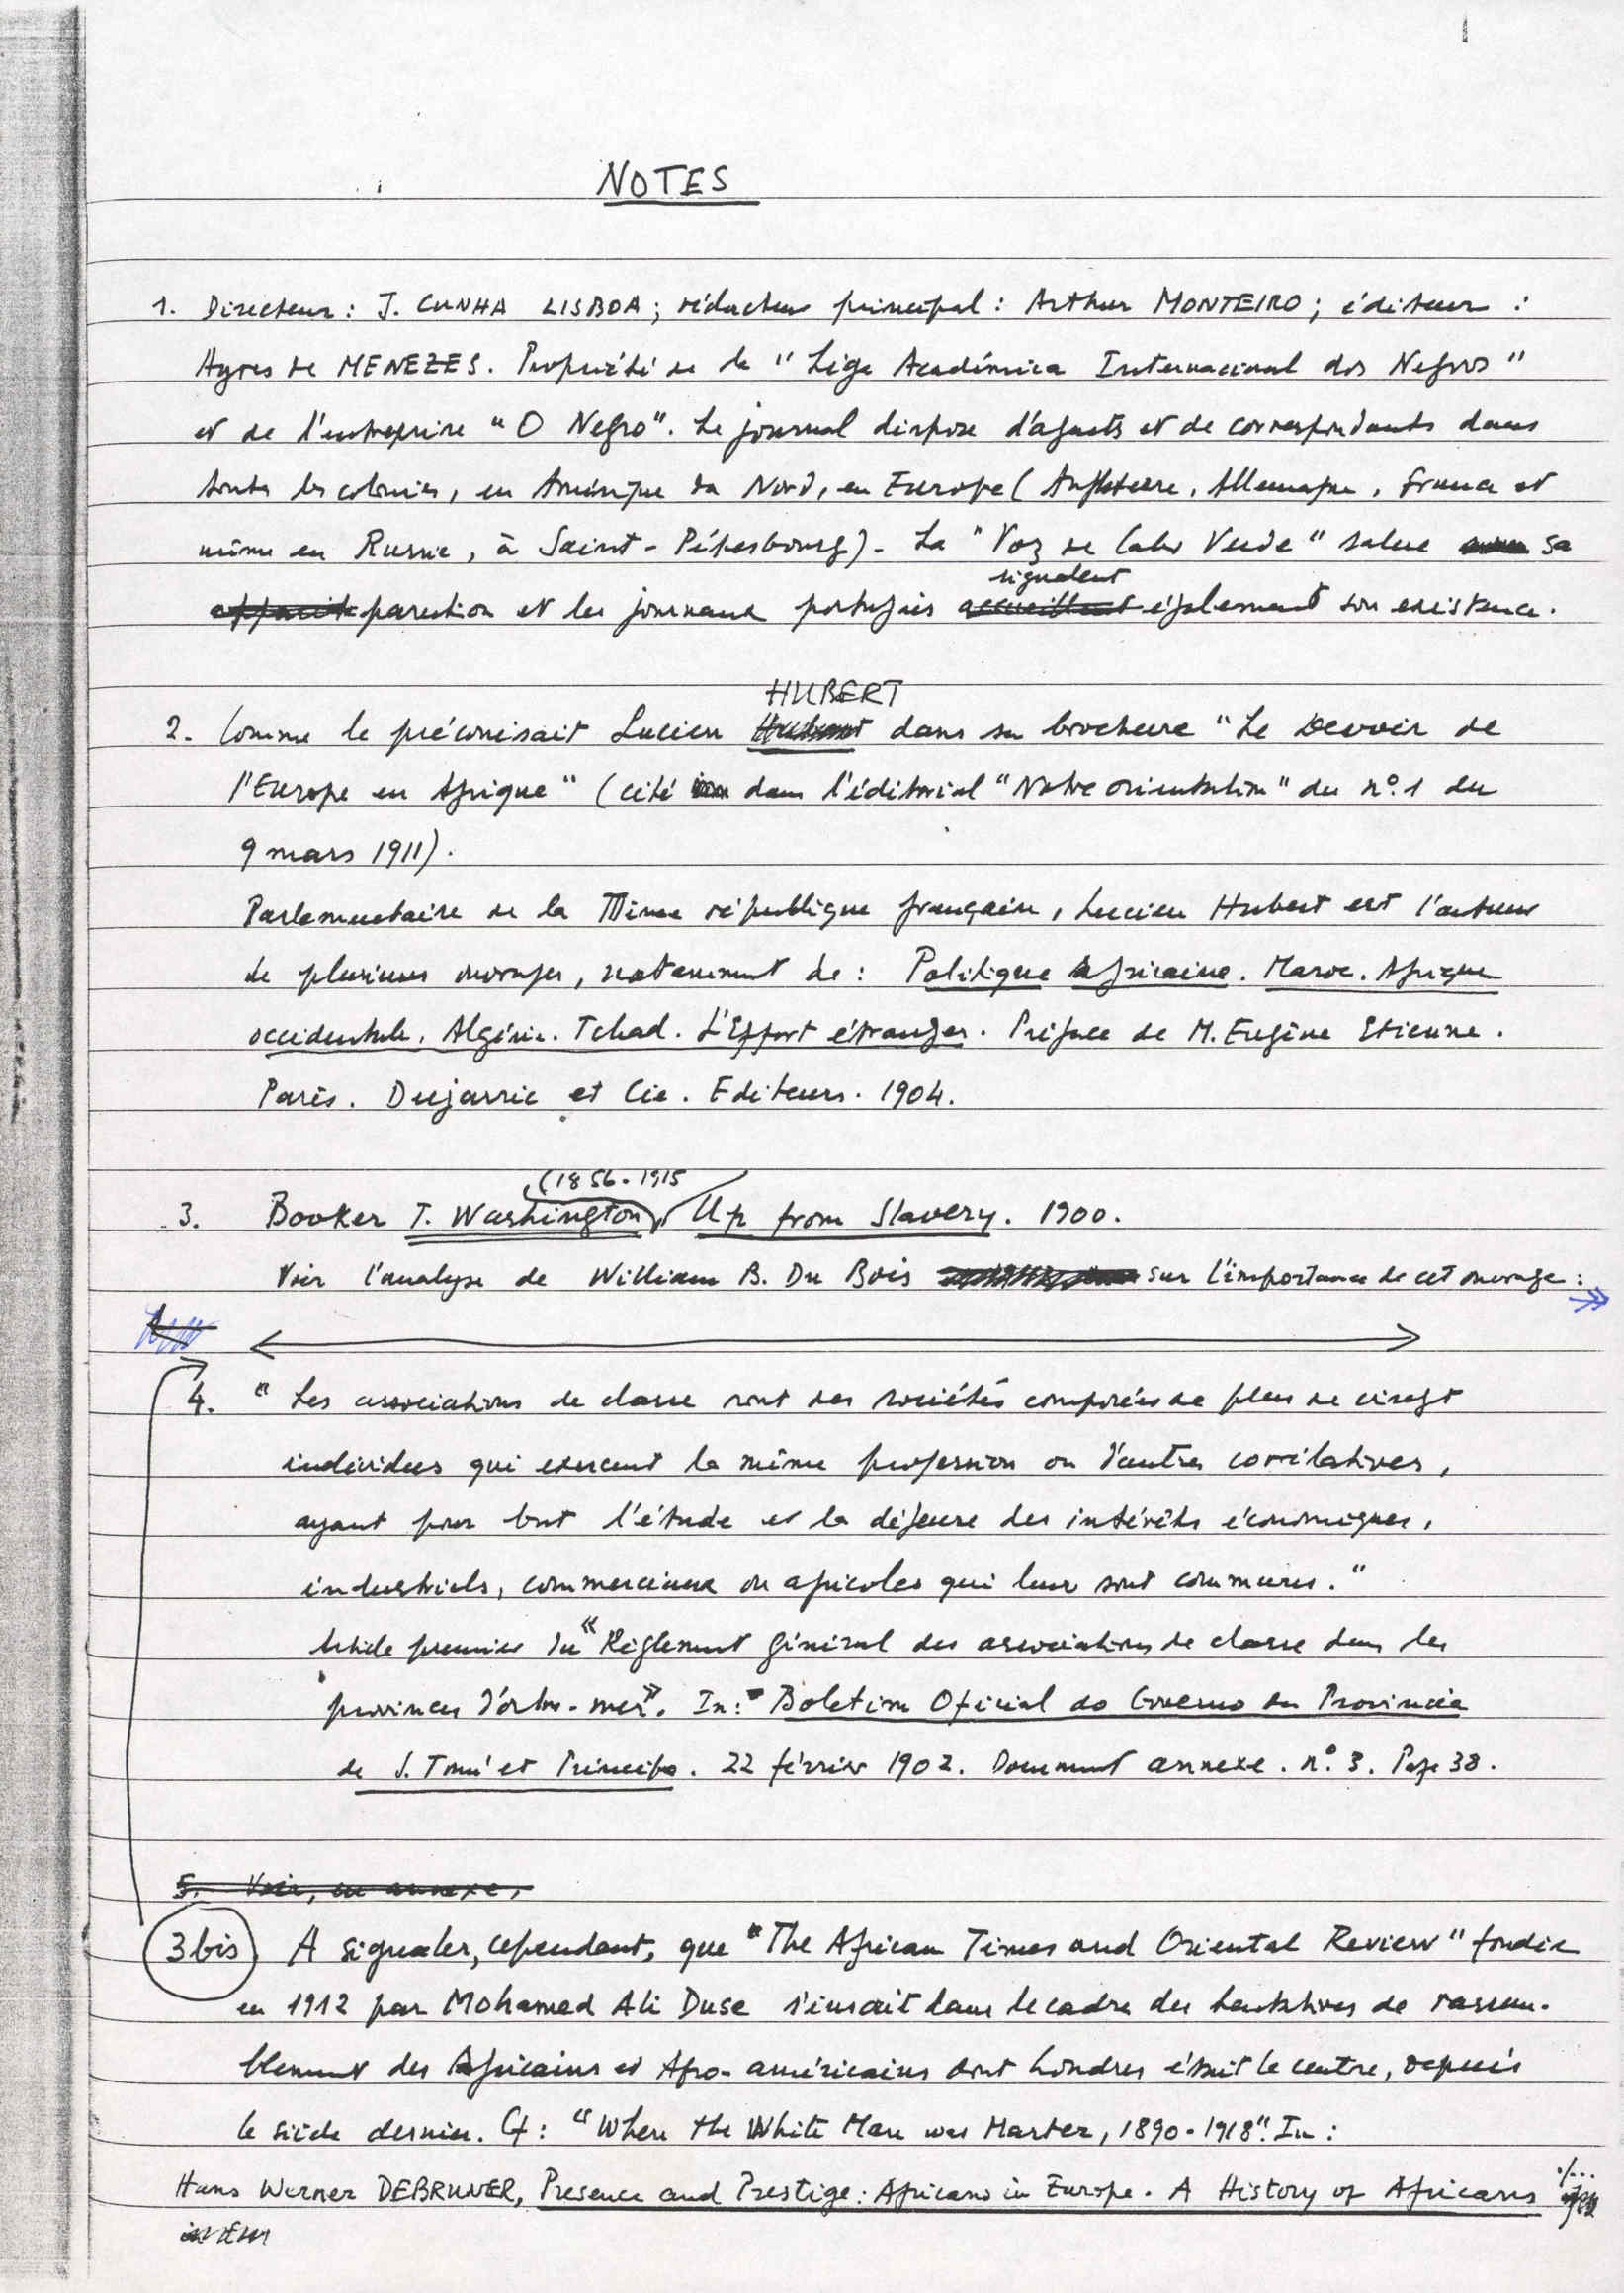 NOTES
1. Directeur : J. CUNHA LISBOA ; rédacteur principal : Arthur MONTEIRO ; éditeur :
Ayres de MENEZES. Propriété de la "Liga Académica Internacional dos Negros"
et de l'entreprise "O Negro". Le journal dispose d'agents et de correspondants dans
toutes les colonies, en Amérique du Nord, en Europe (Angleterre, Allemagne, France et
même en Russie, à Saint-Pétersbourg). La "Voz de Cabo Verde" salue sa
signalent
parution et les journaux portugais accueillent également son existence.
HUBERT
2. Comme le préconisait Lucien Hubert dans sa brochure "Le Devoir de
l'Europe en Afrique" (cité dans l'éditorial "Notre orientation" du n° 1 du
9 mars 1911).
Parlementaire de la IIIème république française, Lucien Hubert est l'auteur
de plusieurs ouvrages, notamment de : Politique africaine. Maroc. Afrique
occidentale. Algérie. Tchad. L'Effort étranger. Préface de M. Eugène Etienne.
Paris. Dujarric et Cie. Editeurs. 1904.
(1856-1915
3. Booker T. Washington), Up from Slavery. 1900.
Voir l'analyse de William B. Du Bois sur l'importance de cet ouvrage :
4. "Les associations de classe sont des sociétés composées de plus de vingt
individus qui exercent la même profession ou d'autres corrélatives,
ayant pour but l'étude et la défense des intérêts économiques,
industriels, commerciaux ou agricoles qui leur sont communs."
Article premier du "Règlement général des associations de classe dans les
provinces d'outre-mer". In : Boletim Oficial do Governo da Provincia
de S. Tomé et Principe. 22 février 1902. Document annexe. n° 3. Page 38.
5. Voir, en annexe,
3 bis A signaler, cependant, que "The African Times and Oriental Review" fondée
en 1912 par Mohamed Ali Duse s'insrait dans le cadre des tentatives de rassem-
blement des Africains et Afro-américains dont Londres était le centre, depuis
le siècle dernier. Cf : "When the White Man was Master, 1890-1918". In :
Hans Werner DEBRUNER, Presence and Prestige : Africans in Europe. A History of Africans
./...